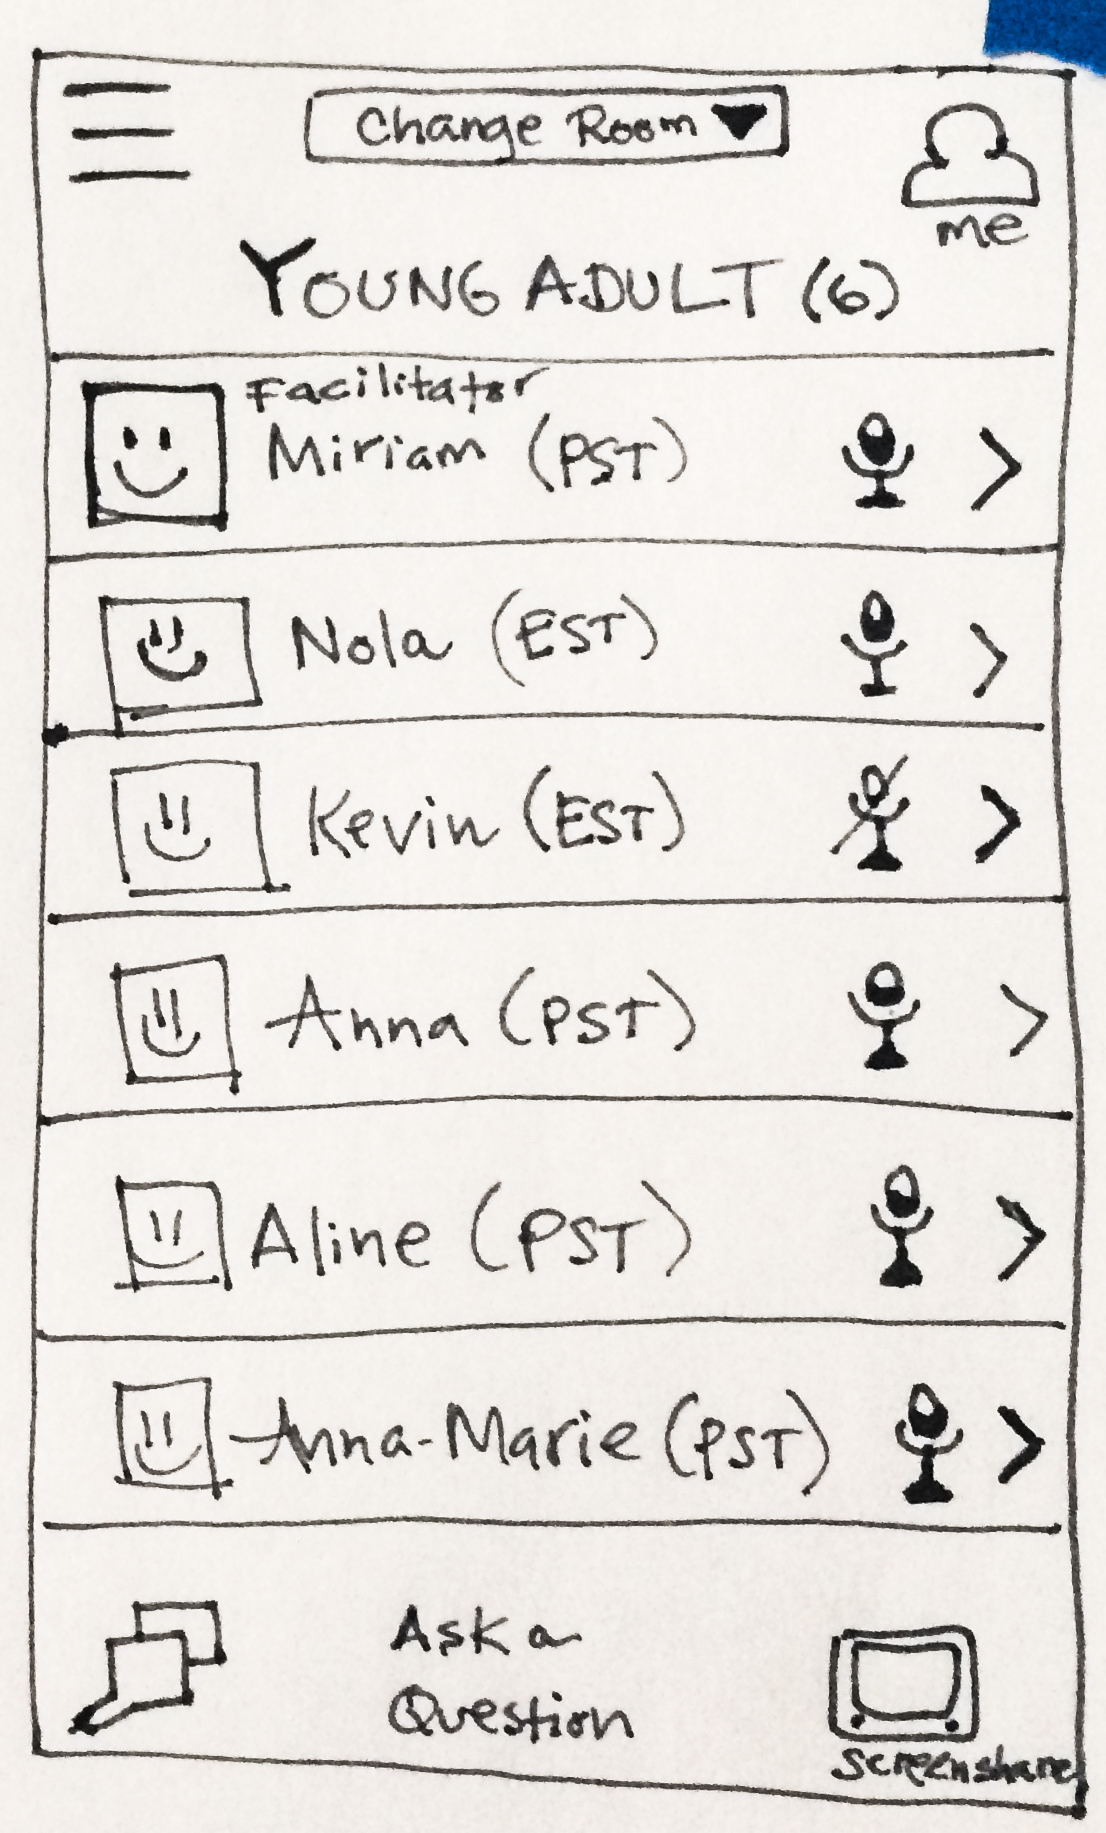 Change Room
me
YOUNG ADULT (6)
Facilitator
Miriam (PST)
Nola (EST)
Kevin (EST)
Anna (PST)
Aline (PST)
Anna-Marie (PST)
Ask a
Question
Screenshare